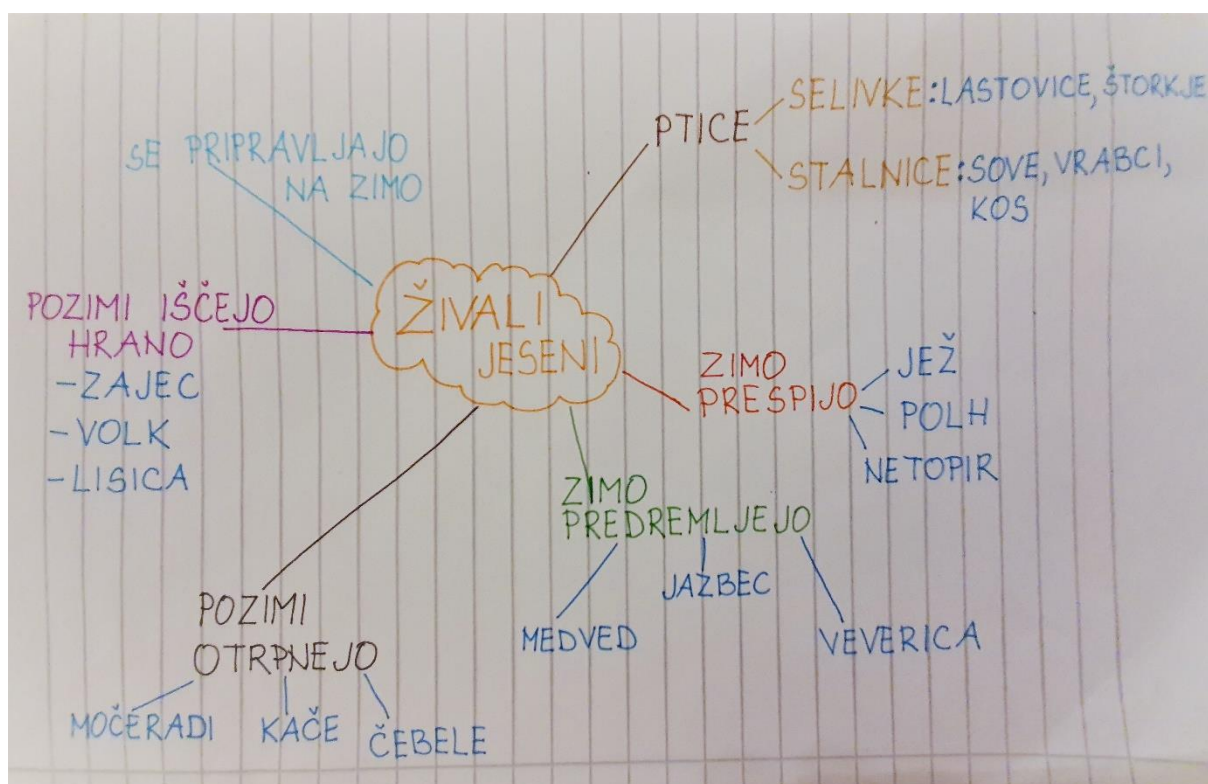 ŽIVALI
JESENI
SE PRIPRAVLJAJO
NA ZIMO
PTICE
SELIVKE: LASTOVICE, ŠTORKJE
STALNICE: SOVE, VRABCI,
KOS
POZIMI IŠČEJO
HRANO
- ZAJEC
- VOLK
- LISICA
ZIMO
PRESPIJO
JEŽ
POLH
NETOPIR
ZIMO
PREDREMLJEJO
MEDVED
JAZBEC
VEVERICA
POZIMI
OTRPNEJO
MOČERADI
KAČE
ČEBELE